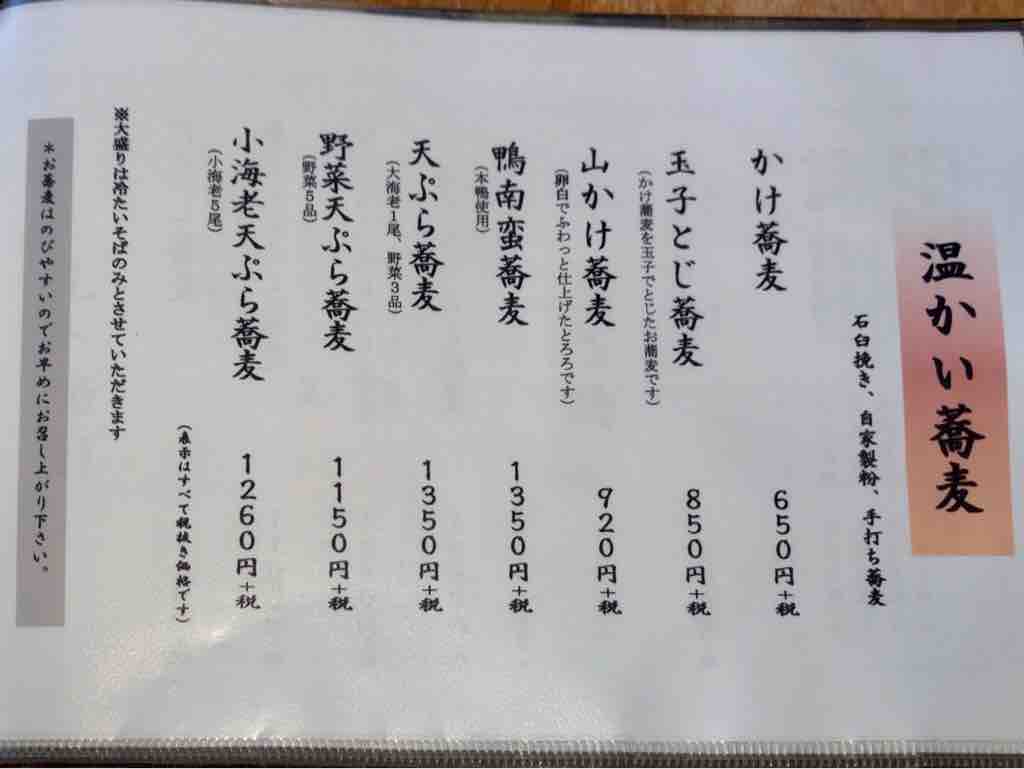 温かい蕎麦
石臼挽き、自家製粉、手打ち蕎麦
かけ蕎麦 650円+税
玉子とじ蕎麦 850円+税
(かけ蕎麦を玉子でとじたお蕎麦です)
山かけ蕎麦 920円+税
(卵白でふわっと仕上げたとろろです)
鴨南蛮蕎麦 1350円+税
(本鴨使用)
天ぷら蕎麦 1350円+税
(大海老1尾、野菜3品)
野菜天ぷら蕎麦 1150円+税
(野菜5品)
小海老天ぷら蕎麦 1260円+税
(小海老5尾)
(表示はすべて税抜き価格です)
※大盛りは冷たいそばのみとさせていただきます
*お蕎麦はのびやすいのでお早めにお召し上がり下さい。